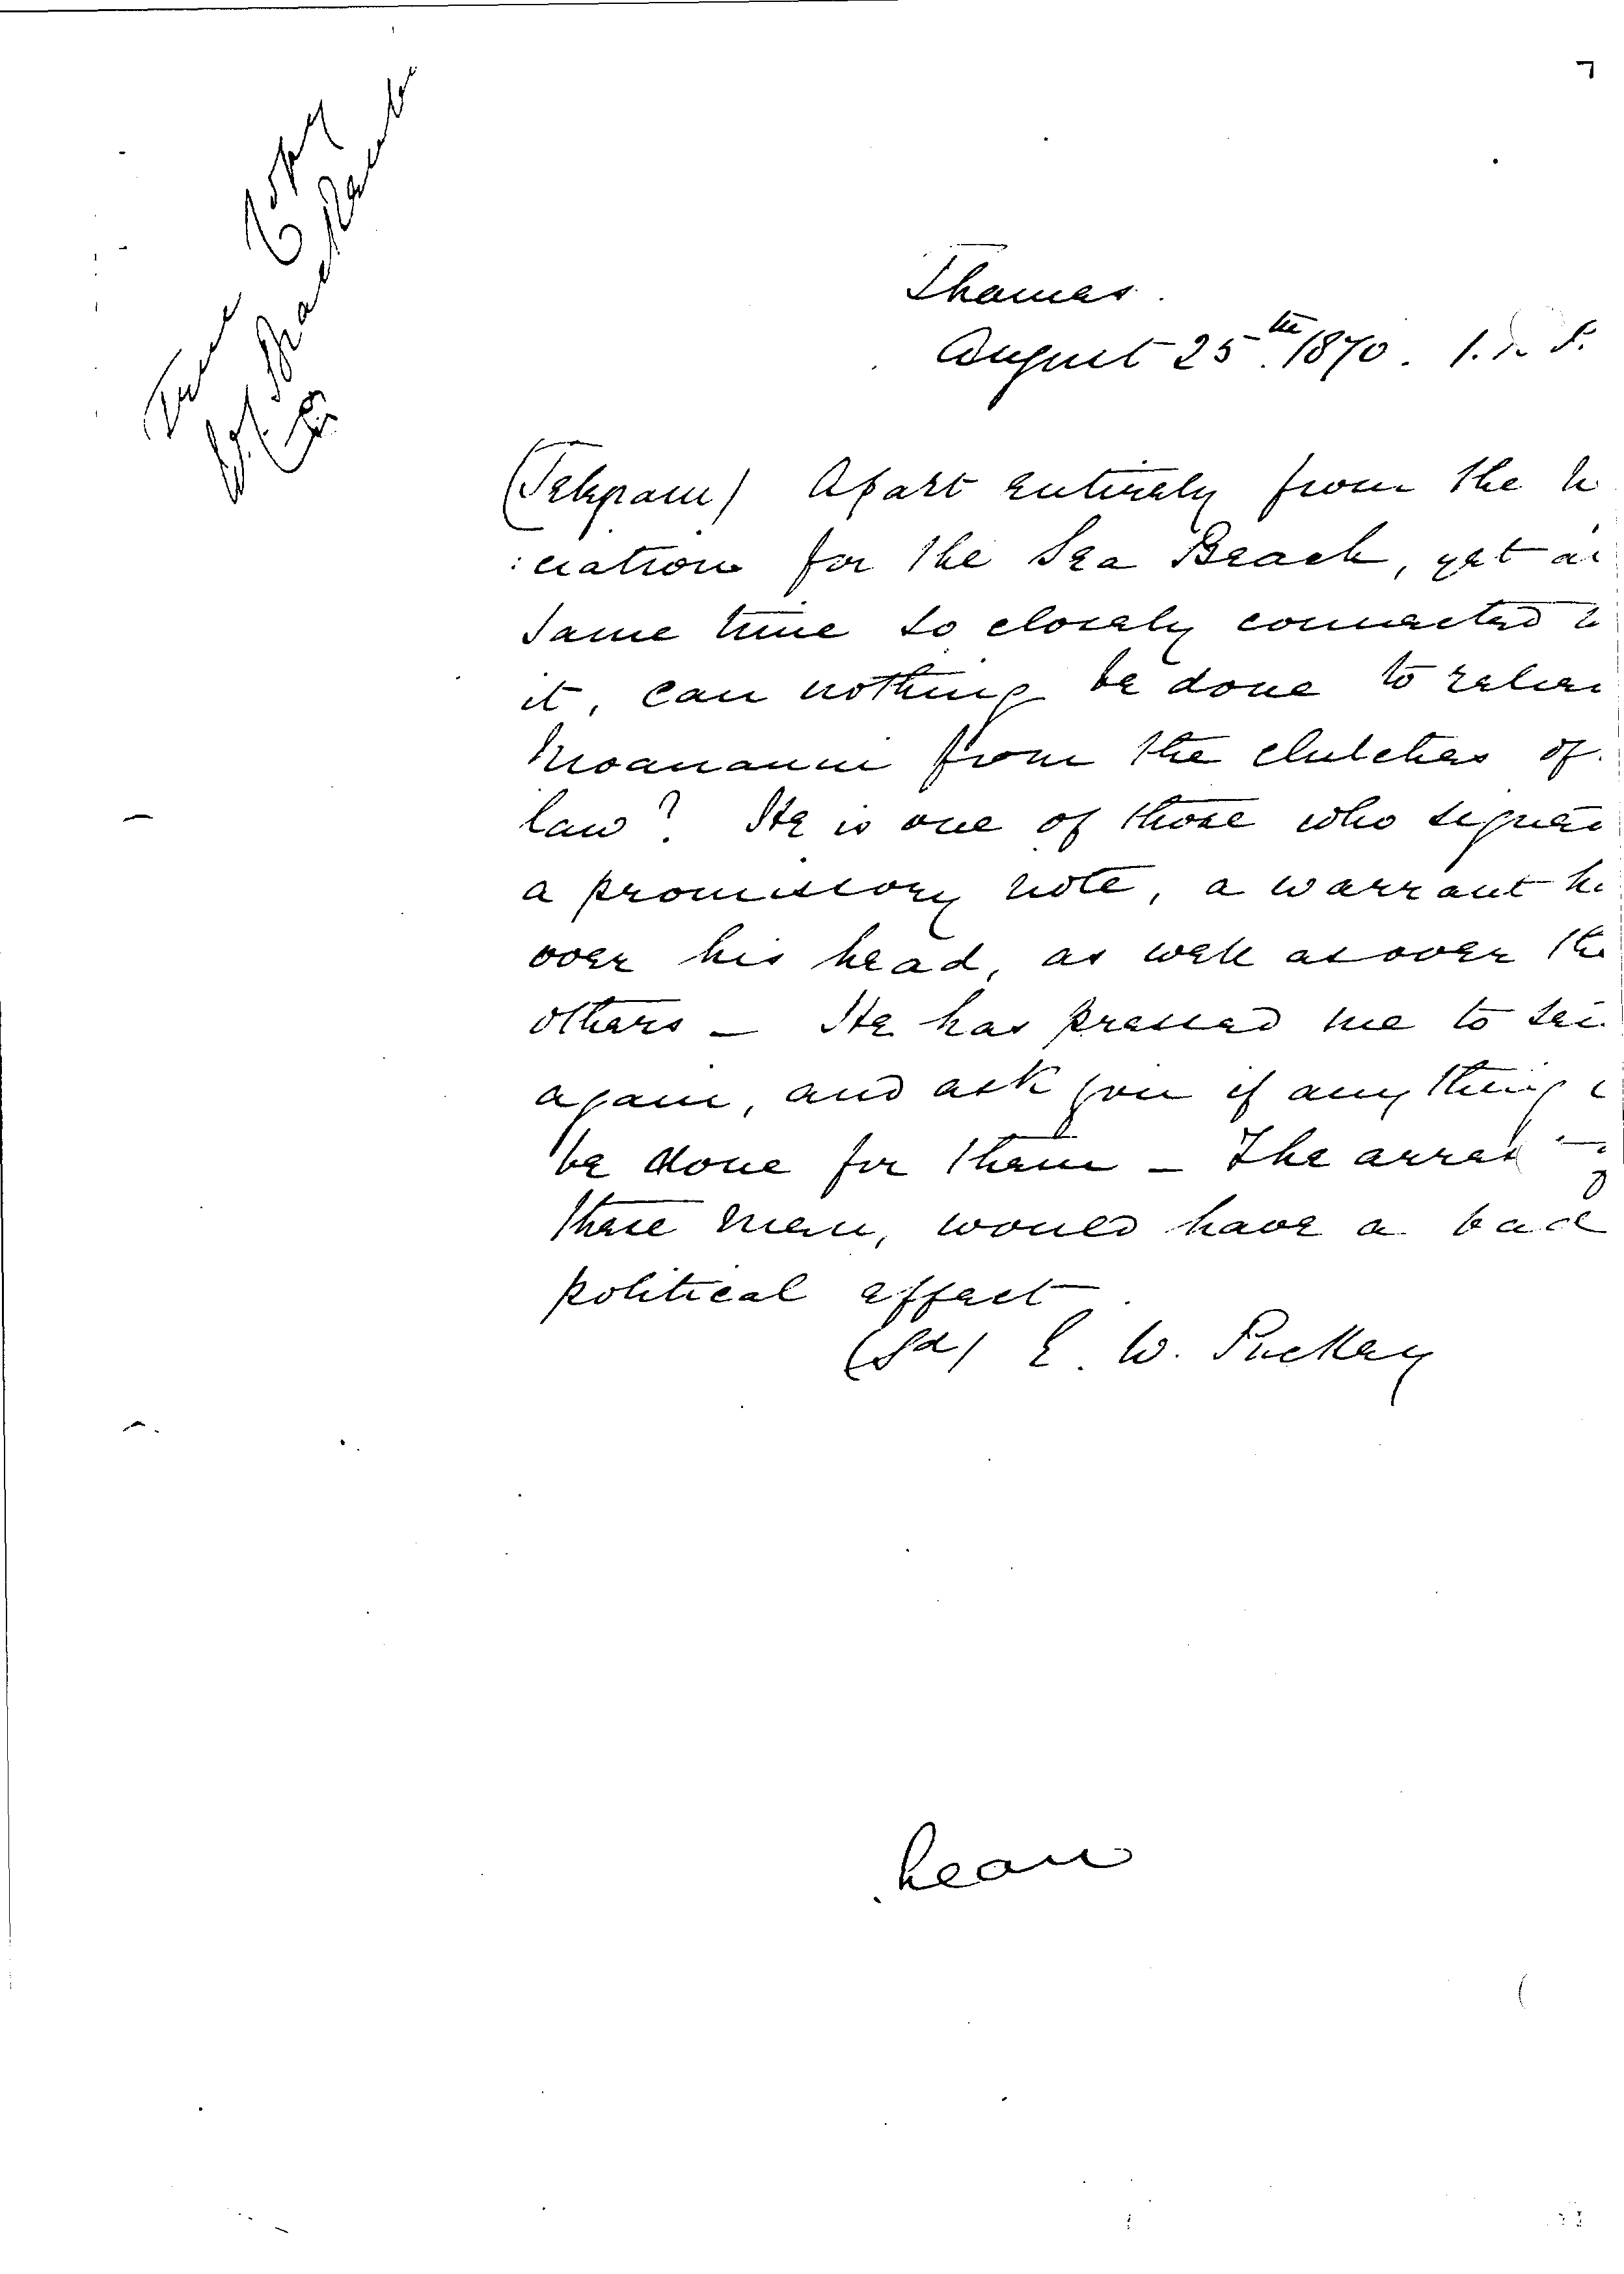 True Copy
Thames.
August 25th. 1870.
(Telegram) Apart entirely from the
:ciation for the Sea Beach, yet
same time so closely connected
it, can nothing be done to
Moananui from the clutches of
law? He is one of those who signed
a promissory note, a warrant
over his head, as well as over the
others – He has pressed me to
again, and ask you if any thing
be done for them – The arrest
these men, would have a bad
political effect.
(Sd) E. W. Puckey